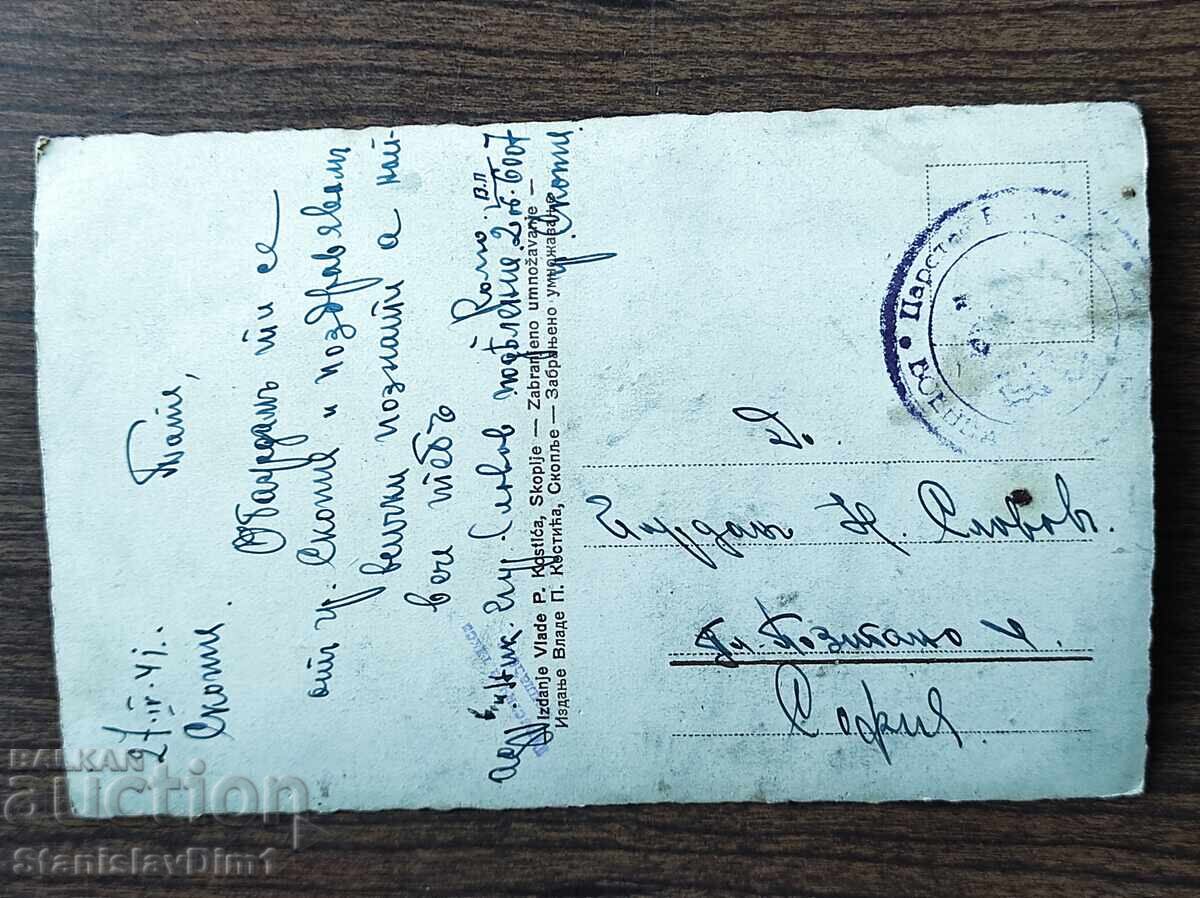 27.IV.41.
Скопие.
Тате,
Обаждамъ ти се
отъ гр. Скопие и поздравявамъ
всички познати а най-
вече тебъ
Кольо.
Словов подѣление 2 6007
гр. Скопие.
Izdanje Vlade P. Kostića, Skoplje — Zabranjeno umnožavanje —
Издање Владе П. Костића, Скопље — Забрањено умножавање
Царство
Военна
Йордан К. Слововъ.
Ул. Позитано
София.
BALKAN
auction
StanislavDim1